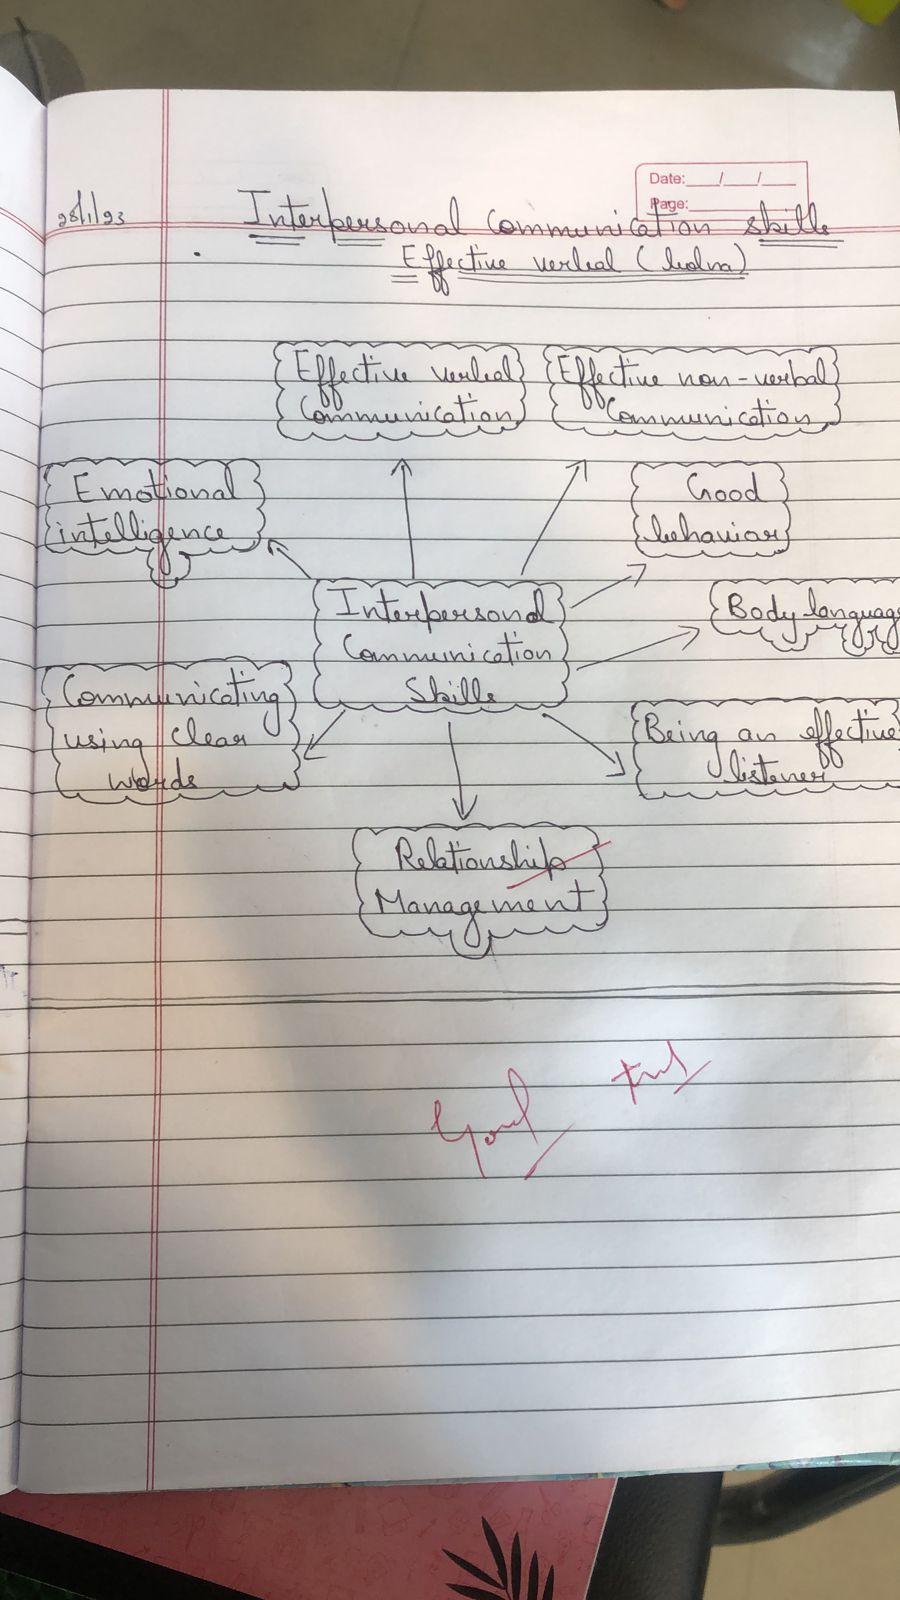 28/1/23
Date:___/___/___
Page:
Interpersonal Communication skills
Effective verbal (bolna)
Effective verbal
Communication
Effective non-verbal
Communication
Emotional
intelligence
Good
behaviour
Interpersonal
Communication
Skills
Body language
Communicating
using clear
words
Being an effective
listener
Relationship
Management
Good